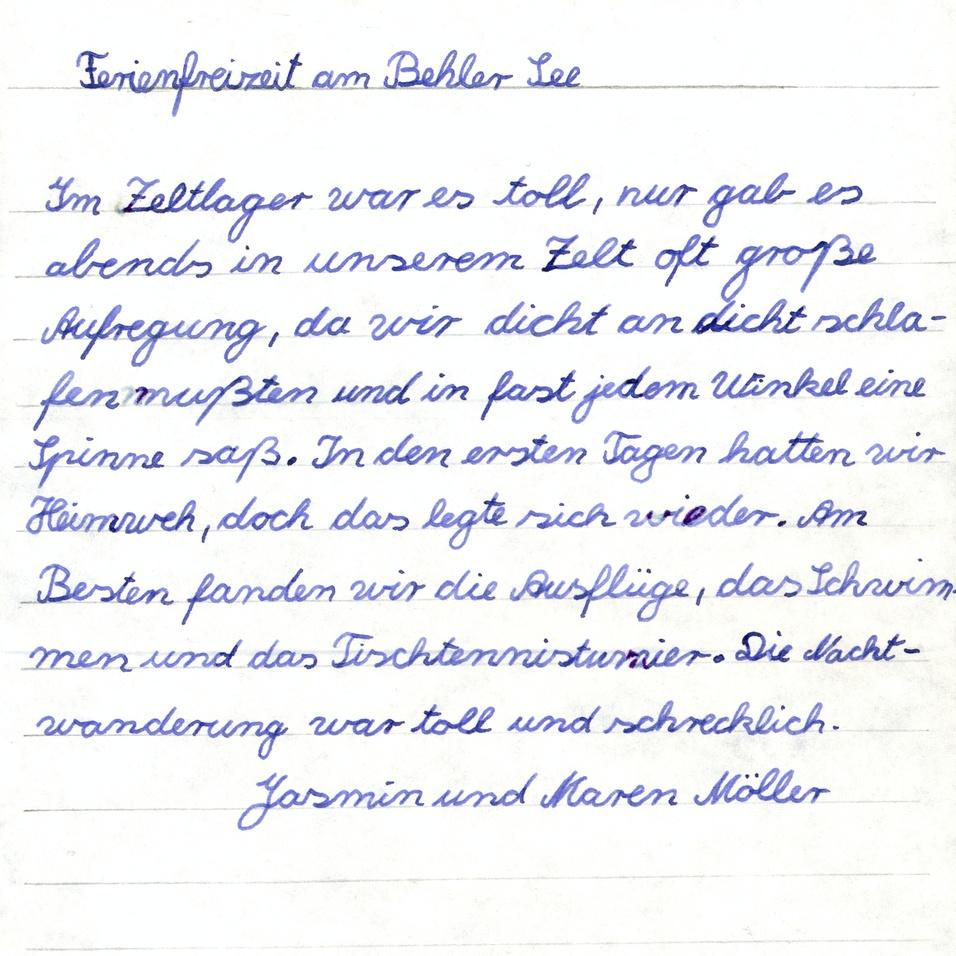 Ferienfreizeit am Behler See
Im Zeltlager war es toll, nur gab es
abends in unserem Zelt oft große
Aufregung, da wir dicht an dicht schla-
fen mußten und in fast jedem Winkel eine
Spinne saß. In den ersten Tagen hatten wir
Heimweh, doch das legte sich wieder. Am
Besten fanden wir die Ausflüge, das Schwim-
men und das Tischtennisturnier. Die Nacht-
wanderung war toll und schrecklich.
Yasmin und Maren Möller